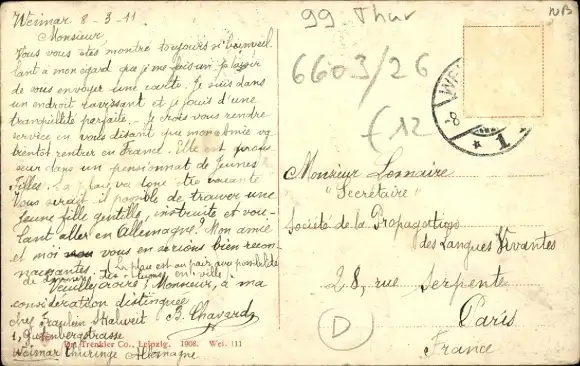 Weimar 8-3-11
Monsieur
Vous vous êtes montré toujours si bienveil
lant à mon égard que je me fais un plaisir
de vous envoyer une carte. Je suis dans
un endroit ravissant et je jouis d'une
tranquillité parfaite. Je crois vous rendre
service en vous disant que mon amie va
bientôt rentrer en France. Elle est
dans un pensionnat de Jeunes
Filles. La place va donc être vacante
Vous serait-il possible de trouver une
jeune fille gentille, instruite et vou-
lant aller en Allemagne? Mon amie
et moi vous en serions bien recon-
naissantes. La place est au pair, avec possibilité
de donner des leçons en ville.
Veuillez croire, Monsieur, à ma
considération distinguée
B. Chavard
chez Fraulein
1, Gutenbergstrasse
Weimar Thuringe Allemagne
Dr. Trenkler Co., Leipzig. 1908. Wei. 111
99 Thür
6603/26
€12
NB
WE
-8
* 1
Monsieur Lemaire
"Secrétaire"
Société de la Propagation
des Langues Vivantes
28, rue Serpente
Paris
France
D